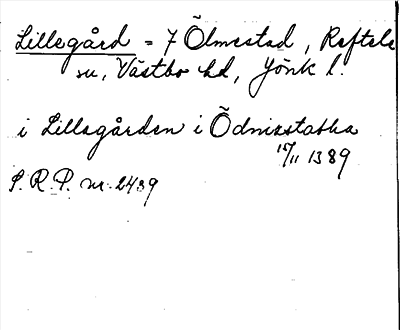 Lillegård = 7 Ölmestad, Reftele
sn, Västbo hd, Jönk l.
i Lillagården i Ödmixstatha
17/11 1389
S. R. P. nr 2439